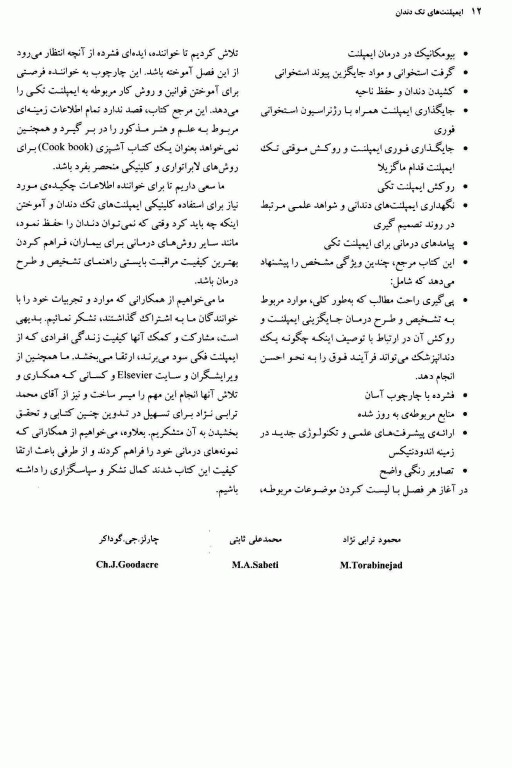 ۱۲ ایمپلنت‌های تک دندان
• بیومکانیک در درمان ایمپلنت
• گرفت استخوانی و مواد جایگزین پیوند استخوانی
• کشیدن دندان و حفظ ناحیه
• جایگذاری ایمپلنت همراه با رژنراسیون استخوانی
فوری
• جایگذاری فوری ایمپلنت و روکش موقتی تک
ایمپلنت قدام ماگزیلا
• روکش ایمپلنت تکی
• نگهداری ایمپلنت‌های دندانی و شواهد علمی مرتبط
در روند تصمیم گیری
• پیامدهای درمانی برای ایمپلنت تکی
• این کتاب مرجع، چندین ویژگی مشخص را پیشنهاد
می‌دهد که شامل:
• پی‌گیری راحت مطالب که به‌طور کلی، موارد مربوط
به تشخیص و طرح درمان جایگزینی ایمپلنت و
روکش آن در ارتباط با توصیف اینکه چگونه یک
دندانپزشک می‌تواند فرآیند فوق را به نحو احسن
انجام دهد.
• فشرده با چارچوب آسان
• منابع مربوطه‌ی به روز شده
• ارائه‌ی پیشرفت‌های علمی و تکنولوژی جدید در
زمینه اندودنتیکس
• تصاویر رنگی واضح
در آغاز هر فصل با لیست کردن موضوعات مربوطه،
تلاش کردیم تا خواننده، ایده‌ای فشرده از آنچه انتظار می‌رود
از این فصل آموخته باشد. این چارچوب به خواننده فرصتی
برای آموختن قوانین و روش کار مربوطه به ایمپلنت تکی را
می‌دهد. این مرجع کتاب، قصد ندارد تمام اطلاعات زمینه‌ای
مربوط به علم و هنر مذکور را در بر گیرد و همچنین
نمی‌خواهد بعنوان یک کتاب آشپزی (Cook book) برای
روش‌های لابراتواری و کلینیکی منحصر بفرد باشد.
ما سعی داریم تا برای خواننده اطلاعات چکیده‌ی مورد
نیاز برای استفاده کلینیکی ایمپلنت‌های تک دندان و آموختن
اینکه چه باید کرد وقتی که نمی‌توان دندان را حفظ نمود،
مانند سایر روش‌های درمانی برای بیماران، فراهم کردن
بهترین کیفیت مراقبت بایستی راهنمای تشخیص و طرح
درمان باشد.
ما می‌خواهیم از همکارانی که موارد و تجربیات خود را با
خوانندگان ما به اشتراک گذاشتند، تشکر نمائیم. بدیهی
است، مشارکت و کمک آنها کیفیت زندگی افرادی که از
ایمپلنت فکی سود می‌برند، ارتقا می‌بخشد. ما همچنین از
ویرایشگران و سایت Elsevier و کسانی که همکاری و
تلاش آنها انجام این مهم را میسر ساخت و نیز از آقای محمد
ترابی نژاد برای تسهیل در تدوین چنین کتابی و تحقق
بخشیدن به آن متشکریم. بعلاوه، می‌خواهیم از همکارانی که
نمونه‌های درمانی خود را فراهم کردند و از طرفی باعث ارتقا
کیفیت این کتاب شدند کمال تشکر و سپاسگزاری را داشته
باشیم.
محمود ترابی نژاد محمدعلی ثابتی چارلز.جی.گوداکر
M.Torabinejad M.A.Sabeti Ch.J.Goodacre